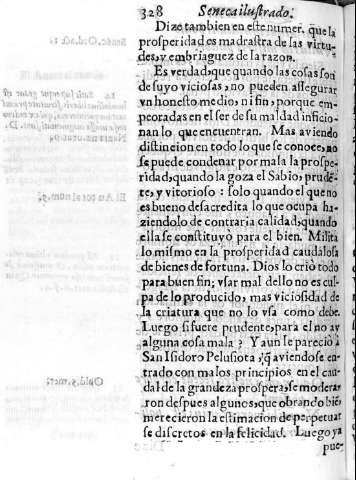 328 Seneca ilustrado.
Dize tambien en este numer. que la
prosperidad es madrastra de las virtu-
des, y embriaguez de la razon.
Es verdad, que quando las cosas son
de suyo viciosas, no pueden assegurar
vn honesto medio, ni fin, porque em-
peoradas en el ser de su maldad inficio-
nan lo que encuentran. Mas aviendo
distincion en todo lo que se conoce, no
se puede condenar por mala la prospe-
ridad, quando la goza el Sabio, prudē-
te, y vitorioso: solo quando el que no
es bueno desacredita lo que ocupa ha-
ziendolo de contraria calidad, quando
ella se constituyò para el bien. Milita
lo mismo en la prosperidad caudalosa
de bienes de fortuna. Dios lo criò todo
para buen fin; vsar mal dello no es cul-
pa de lo producido, mas viciosidad de
la criatura que no lo vsa como debe.
Luego si fuere prudente, para el no ay
alguna cosa mala? Y aun se pareciò a
San Isidoro Pelusiota, q̃ aviendose en-
trado con malos principios en el cau-
dal de la grandeza prospera, se modera-
ron despues algunos, que obrando biē,
merecieron la estimacion de perpetuar
se discretos en la felicidad. Luego ya
pue-